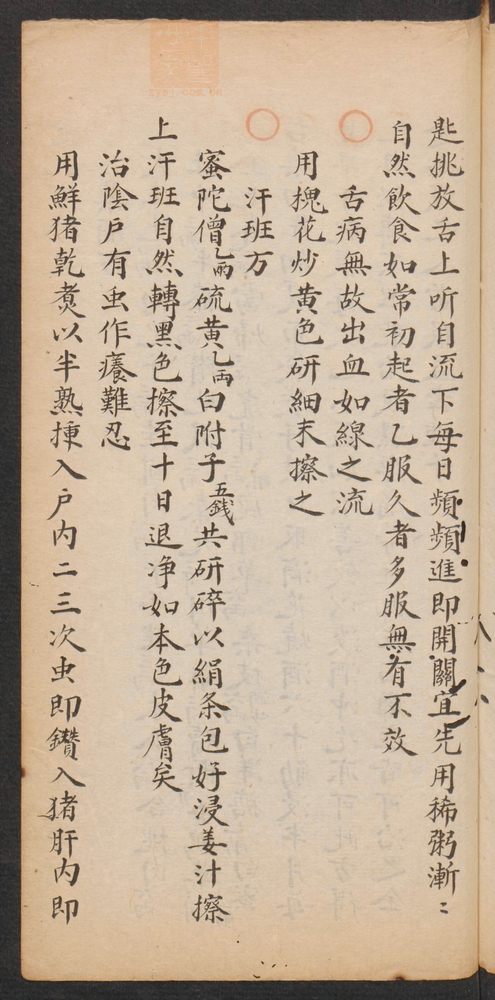 匙挑放舌上听自流下每日頻頻進即開關宜先用稀粥漸〻
自然飲食如常初起者乙服久者多服無有不效
舌病無故出血如線之流
用槐花炒黄色研細末擦之
汗班方
蜜陀僧乙兩硫黄乙兩白附子五錢共研碎以絹条包好浸姜汁擦
上汗班自然轉黑色擦至十日退净如本色皮膚矣
治陰戶有虫作癢難忍
用鮮猪乾煑以半熟揷入户内二三次虫即鑽入猪肝内即